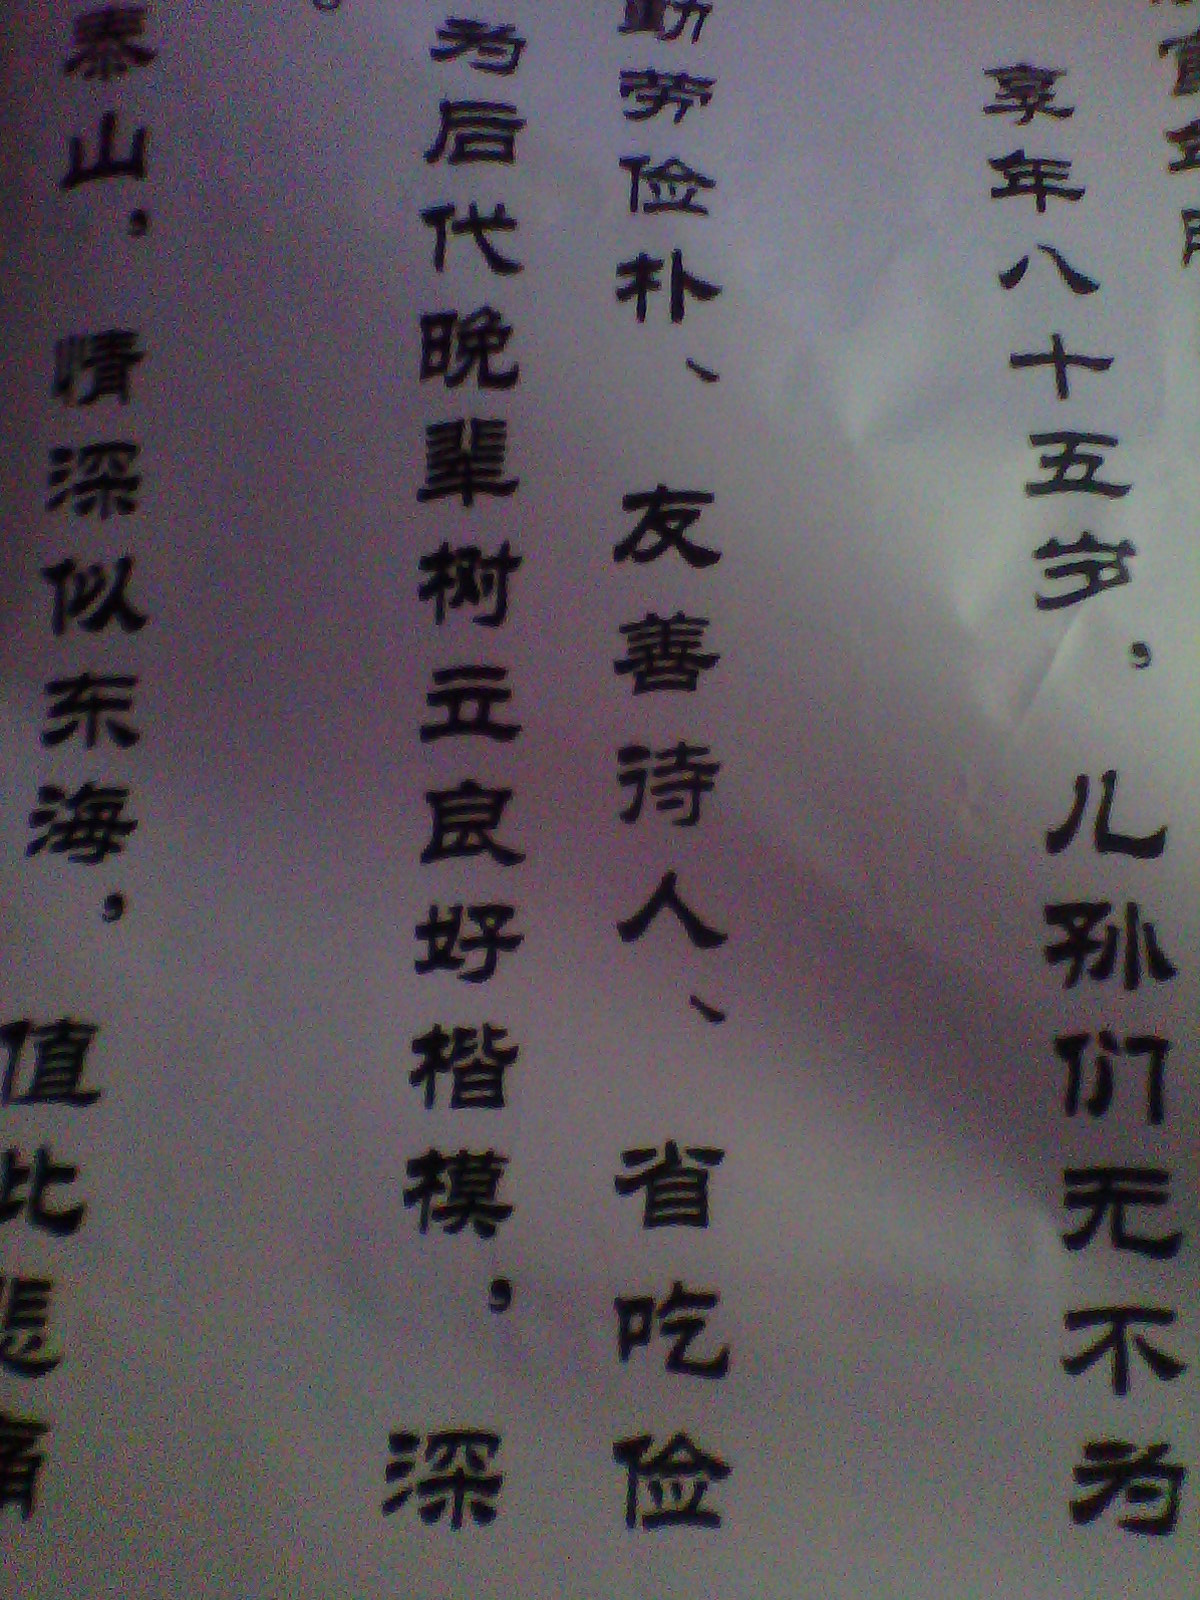 享年八十五岁，儿孙们无不为
勤劳俭朴、友善待人、省吃俭
为后代晚辈树立良好楷模，深
泰山，情深似东海，值此悲痛